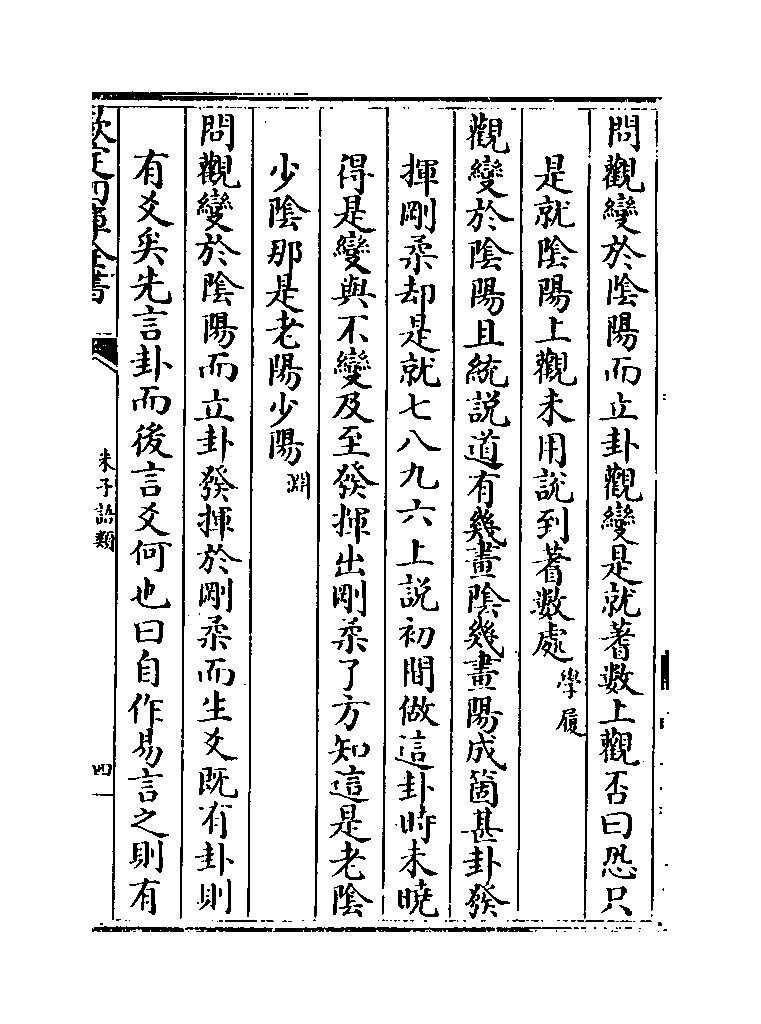 問觀變於陰陽而立卦觀變是就蓍數上觀否曰恐只
是就陰陽上觀未用說到蓍數處學履
觀變於陰陽且統說道有幾畫陰幾畫陽成箇甚卦發
揮剛柔却是就七八九六上說初間做這卦時未曉
得是變與不變及至發揮出剛柔了方知這是老陰
少陰那是老陽少陽淵
問觀變於陰陽而立卦發揮於剛柔而生爻既有卦則
有爻矣先言卦而後言爻何也曰自作易言之則有
欽定四庫全書
朱子語類
四